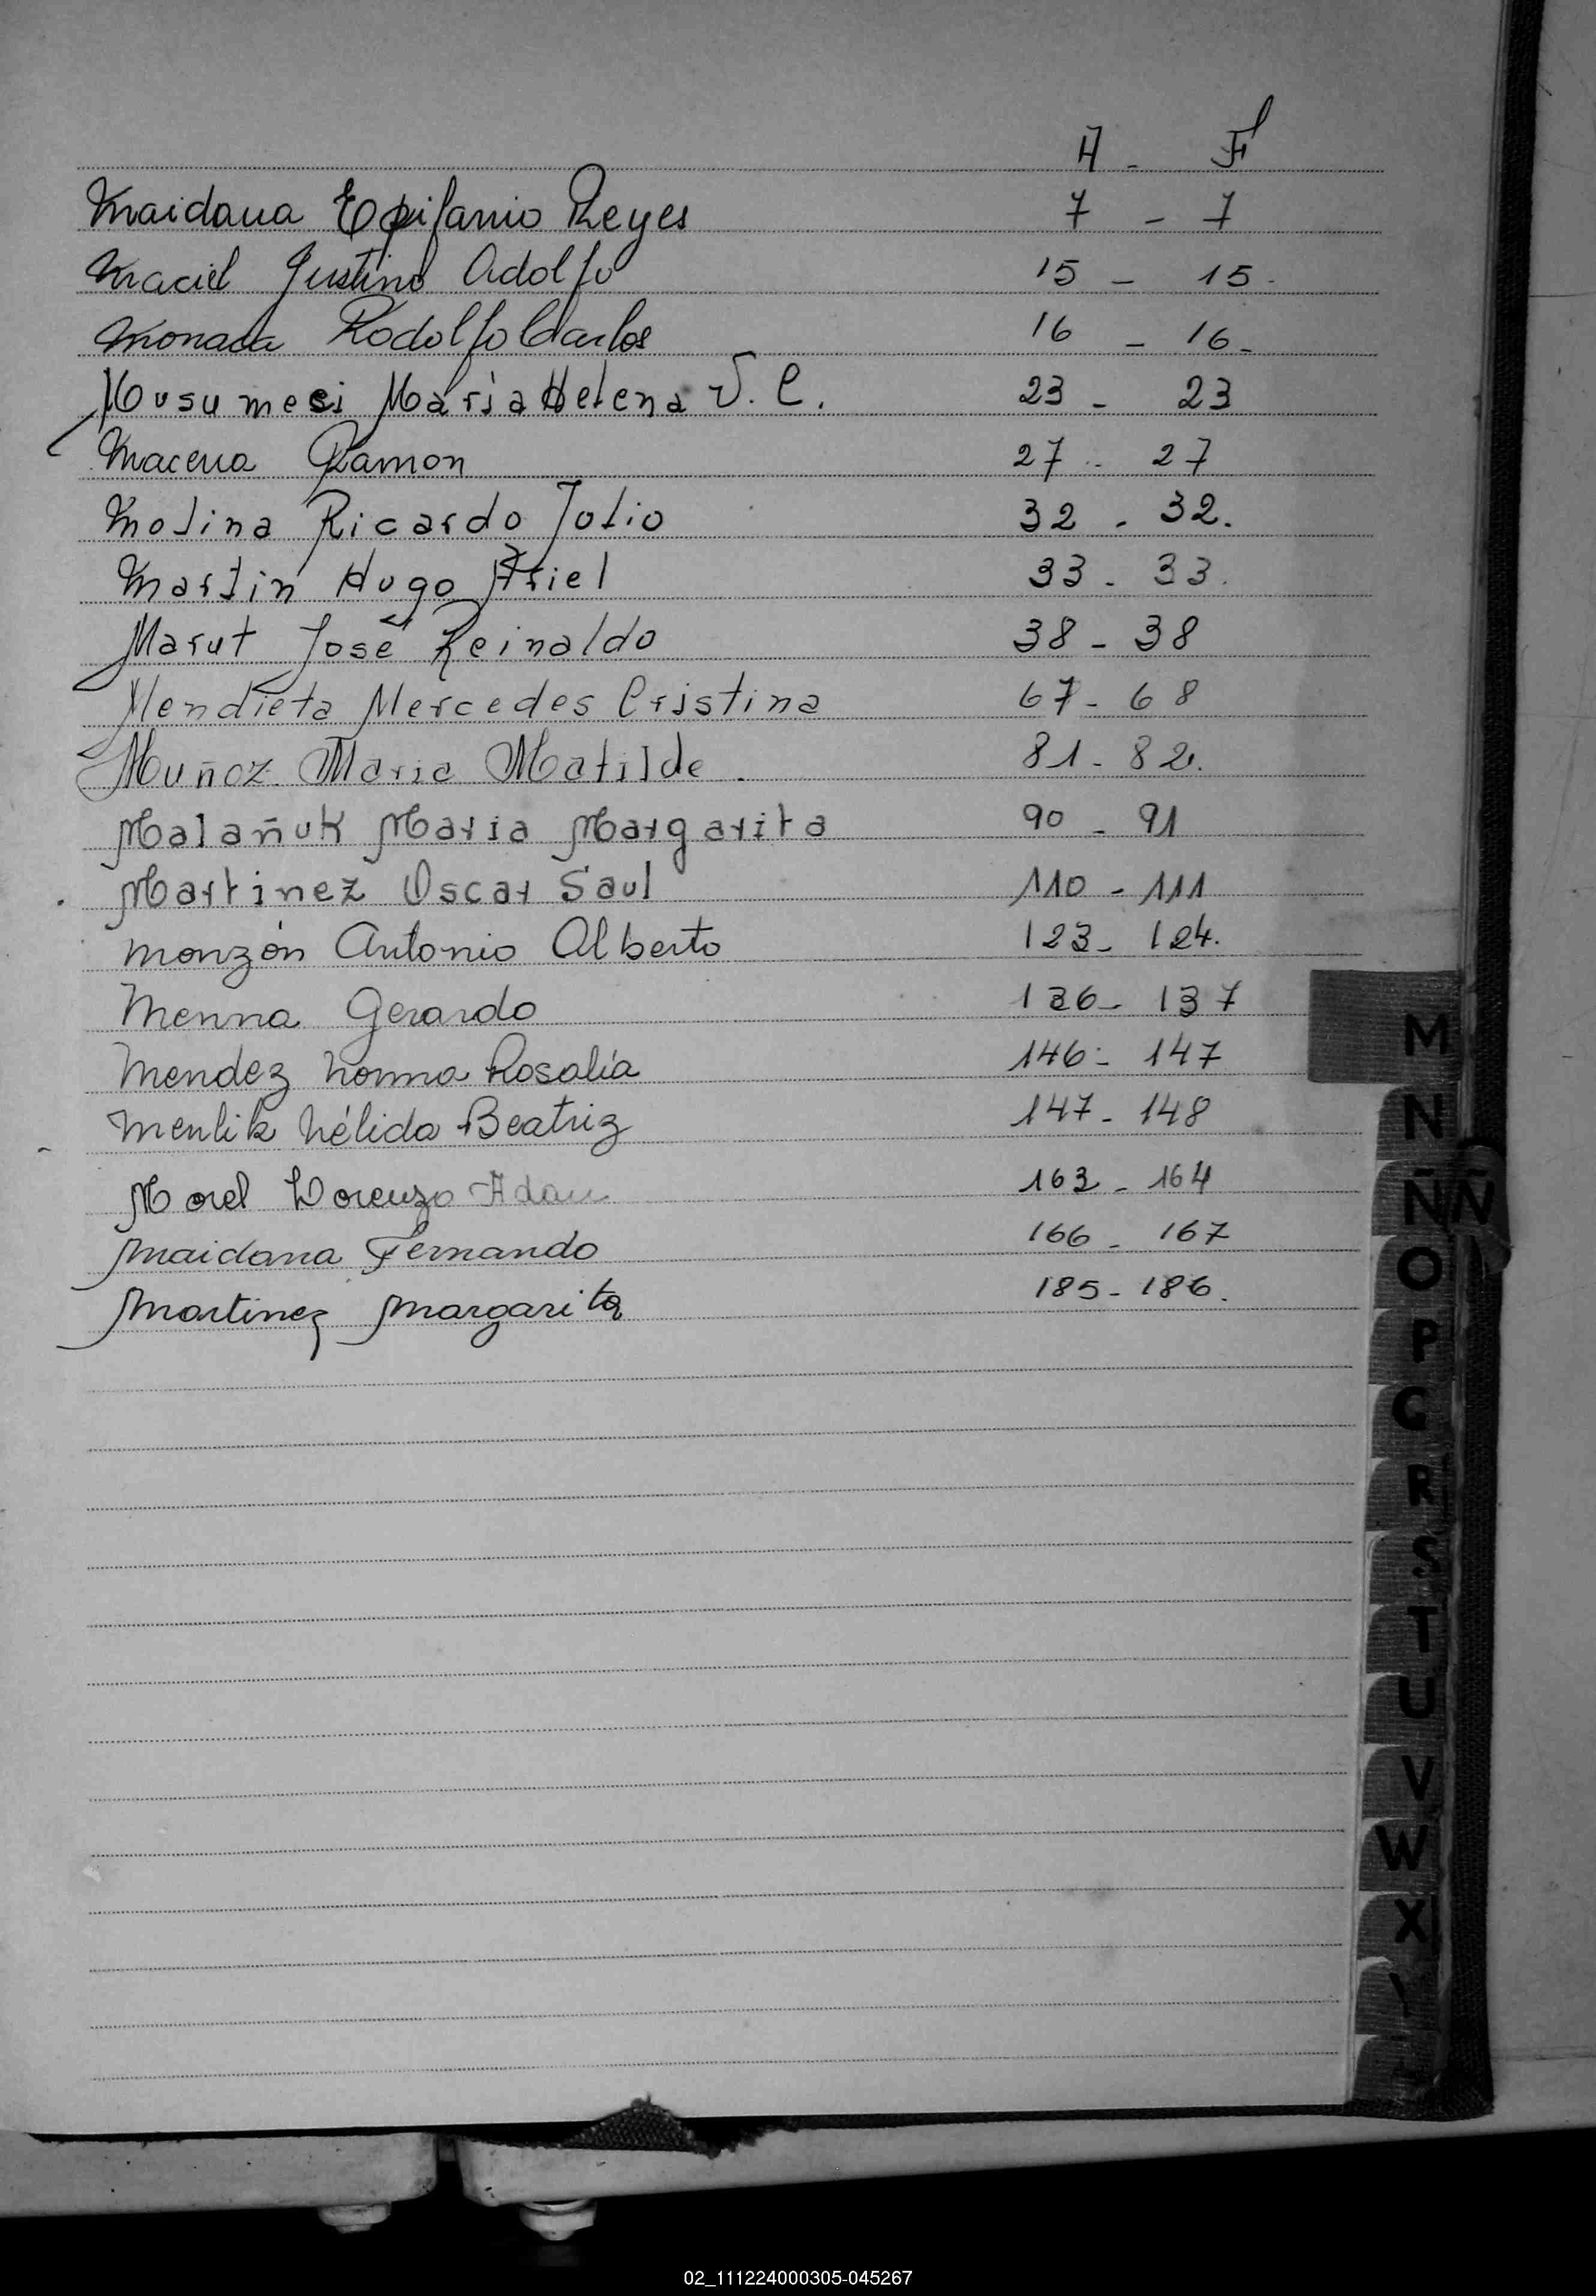 A - F
Maidana Epifanio Reyes 7 - 7
Maciel Justino Adolfo 15 - 15.
Monaca Rodolfo Carlos 16 - 16.
Musumeci Maria Helena V. C. 23 - 23
Macena Ramon 27 - 27
Molina Ricardo Julio 32 - 32.
Martin Hugo Ariel 33 - 33.
Marut José Reinaldo 38 - 38
Mendieta Mercedes Cristina 67 - 68
Muñoz Maria Matilde. 81 - 82.
Malañuk Maria Margarita 90 - 91
Martinez Oscar Saul 110 - 111
Monzón Antonio Alberto 123 - 124.
Menna Gerardo 136 - 137
Mendez Norma Rosalía 146 - 147
Menlik Nélida Beatriz 147 - 148
Morel Lorenzo Adan 163 - 164
Maidana Fernando 166 - 167
Martinez Margarita 185 - 186.
M
N
Ñ Ñ
O
P
R
S
T
U
V
W
X
02_111224000305-045267